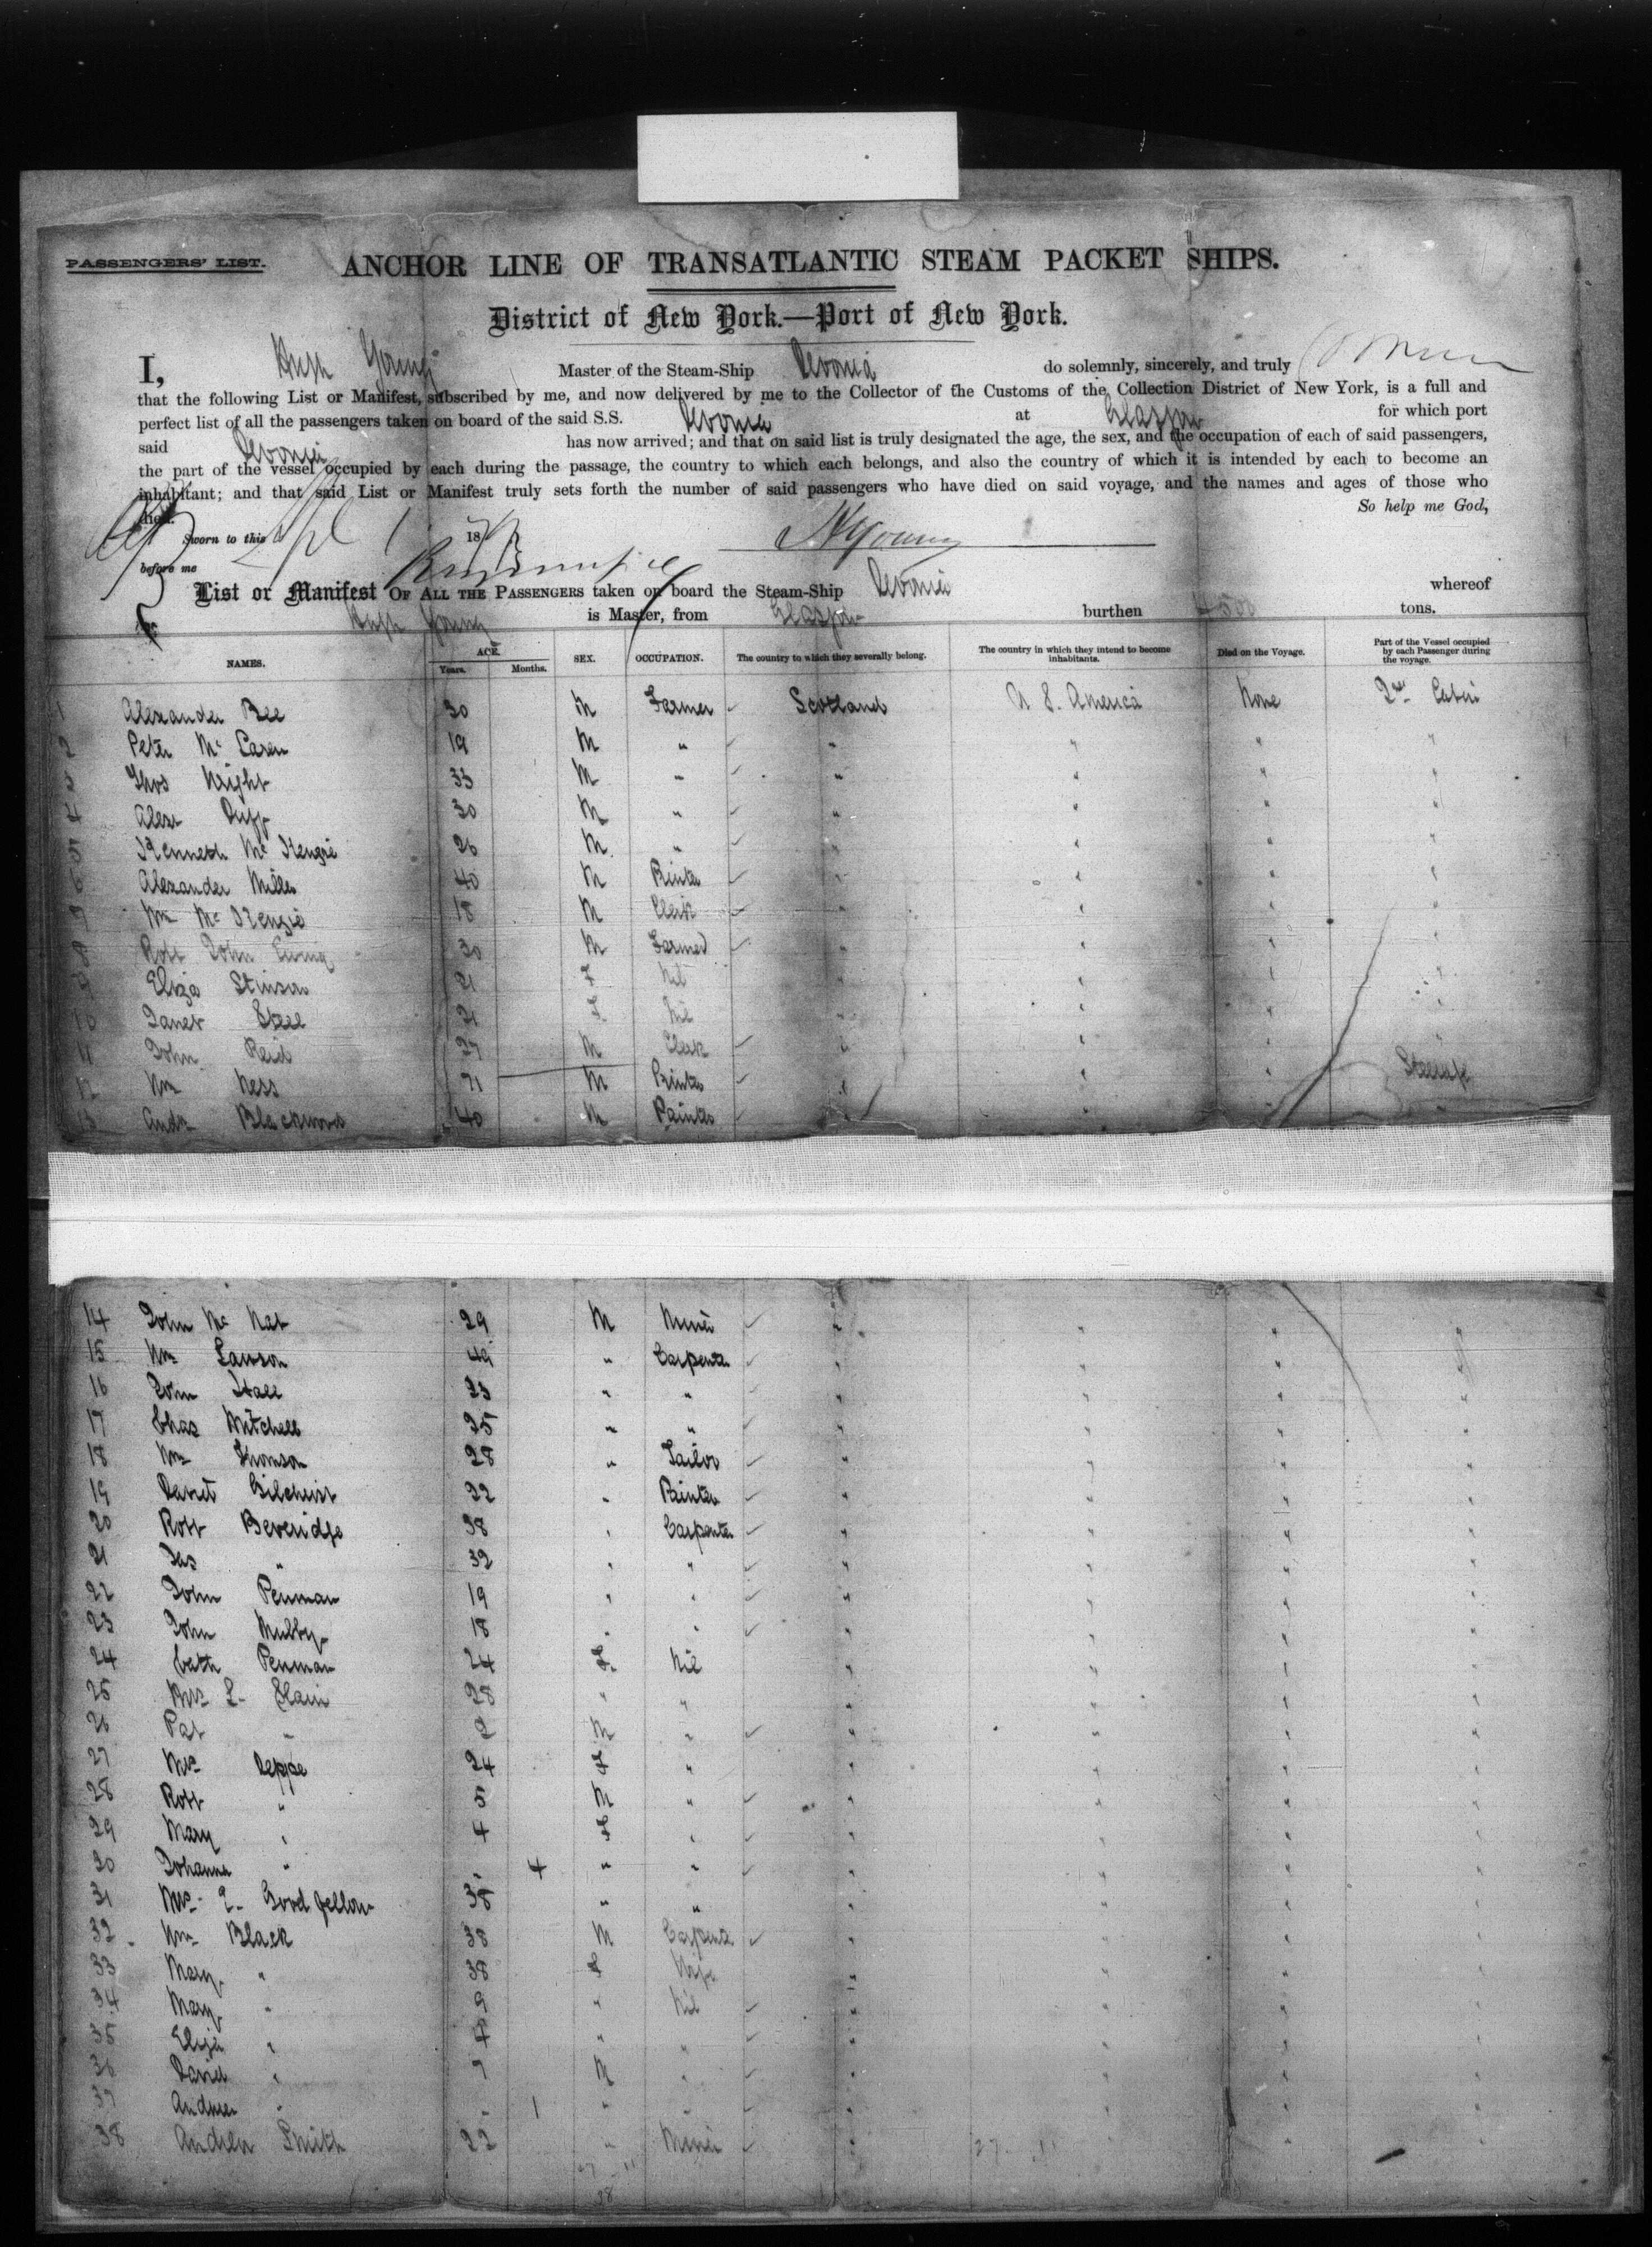 PASSENGERS' LIST.
ANCHOR LINE OF TRANSATLANTIC STEAM PACKET SHIPS.
District of New York.—Port of New York.
I, Hugh Young Master of the Steam-Ship Devonia do solemnly, sincerely, and truly
that the following List or Manifest, subscribed by me, and now delivered by me to the Collector of the Customs of the Collection District of New York, is a full and
perfect list of all the passengers taken on board of the said S.S. Devonia at Glasgow for which port
said Devonia has now arrived; and that on said list is truly designated the age, the sex, and the occupation of each of said passengers,
the part of the vessel occupied by each during the passage, the country to which each belongs, and also the country of which it is intended by each to become an
inhabitant; and that said List or Manifest truly sets forth the number of said passengers who have died on said voyage, and the names and ages of those who
died. So help me God,
Sworn to this 18 HYoung
before me
List or Manifest OF ALL THE PASSENGERS taken on board the Steam-Ship Devonia whereof
Hugh Young is Master, from Glasgow burthen tons.
NAMES. AGE. Years. Months. SEX. OCCUPATION. The country to which they severally belong. The country in which they intend to become inhabitants. Died on the Voyage. Part of the Vessel occupied by each Passenger during the voyage.
1 Alexander Bee 30 M Farmer Scotland U S. America None 2nd Cabin
2 Peter Mc Laren 19 M " " " " "
3 Thos Wright 33 M " " " " "
4 Alexr Duff 30 M " " " " "
5 Kenneth Mc Kenzie 26 M " " " " "
6 Alexander Miller 40 M Printer " " " "
7 Wm Mc Kenzie 18 M Clerk " " " "
8 Robt John Ewing 30 M Farmer " " " "
9 Eliza Stinson 21 F Nil " " " "
10 Janet Steel 21 F Nil " " " "
11 John Reid 27 M Clerk " " "
12 Wm Ness 21 M Printer " " " Steerage
13 Andr Blackwood 40 M Painter " " "
14 John Mc Nab 29 M Miner " " " "
15 Wm Lawson 49 " Carpenter " " " "
16 John Hall 23 " " " " " "
17 Chas Mitchell 25 " " " " " "
18 Wm Thomson 28 " Tailor " " " "
19 David Gilchrist 22 " Painter " " " "
20 Robt Beveridge 38 " Carpenter " " " "
21 Jas " 32 " " " " " "
22 John Penman 19 " " " " " "
23 John 18 " " " " " "
24 Cath Penman 24 F Nil " " " "
25 Mrs 28 " " " " " "
26 Pat " 2 M " " " " "
27 Mrs 24 F " " " " "
28 Robt " 5 M " " " " "
29 Mary " 4 F " " " " "
30 Johanna " " 4 " " " " " "
31 Mrs Goodfellow 38 " " " " " "
32 Wm Black 38 M Carpenter " " " "
33 Mary " 38 F Wife " " " "
34 Mary " 9 " Nil " " " "
35 Eliza " 4 " " " " " "
36 David " 7 M " " " " "
37 Andrew " " 1 " " " " " "
38 Andrew Smith 22 " Miner " " "
27 11
38